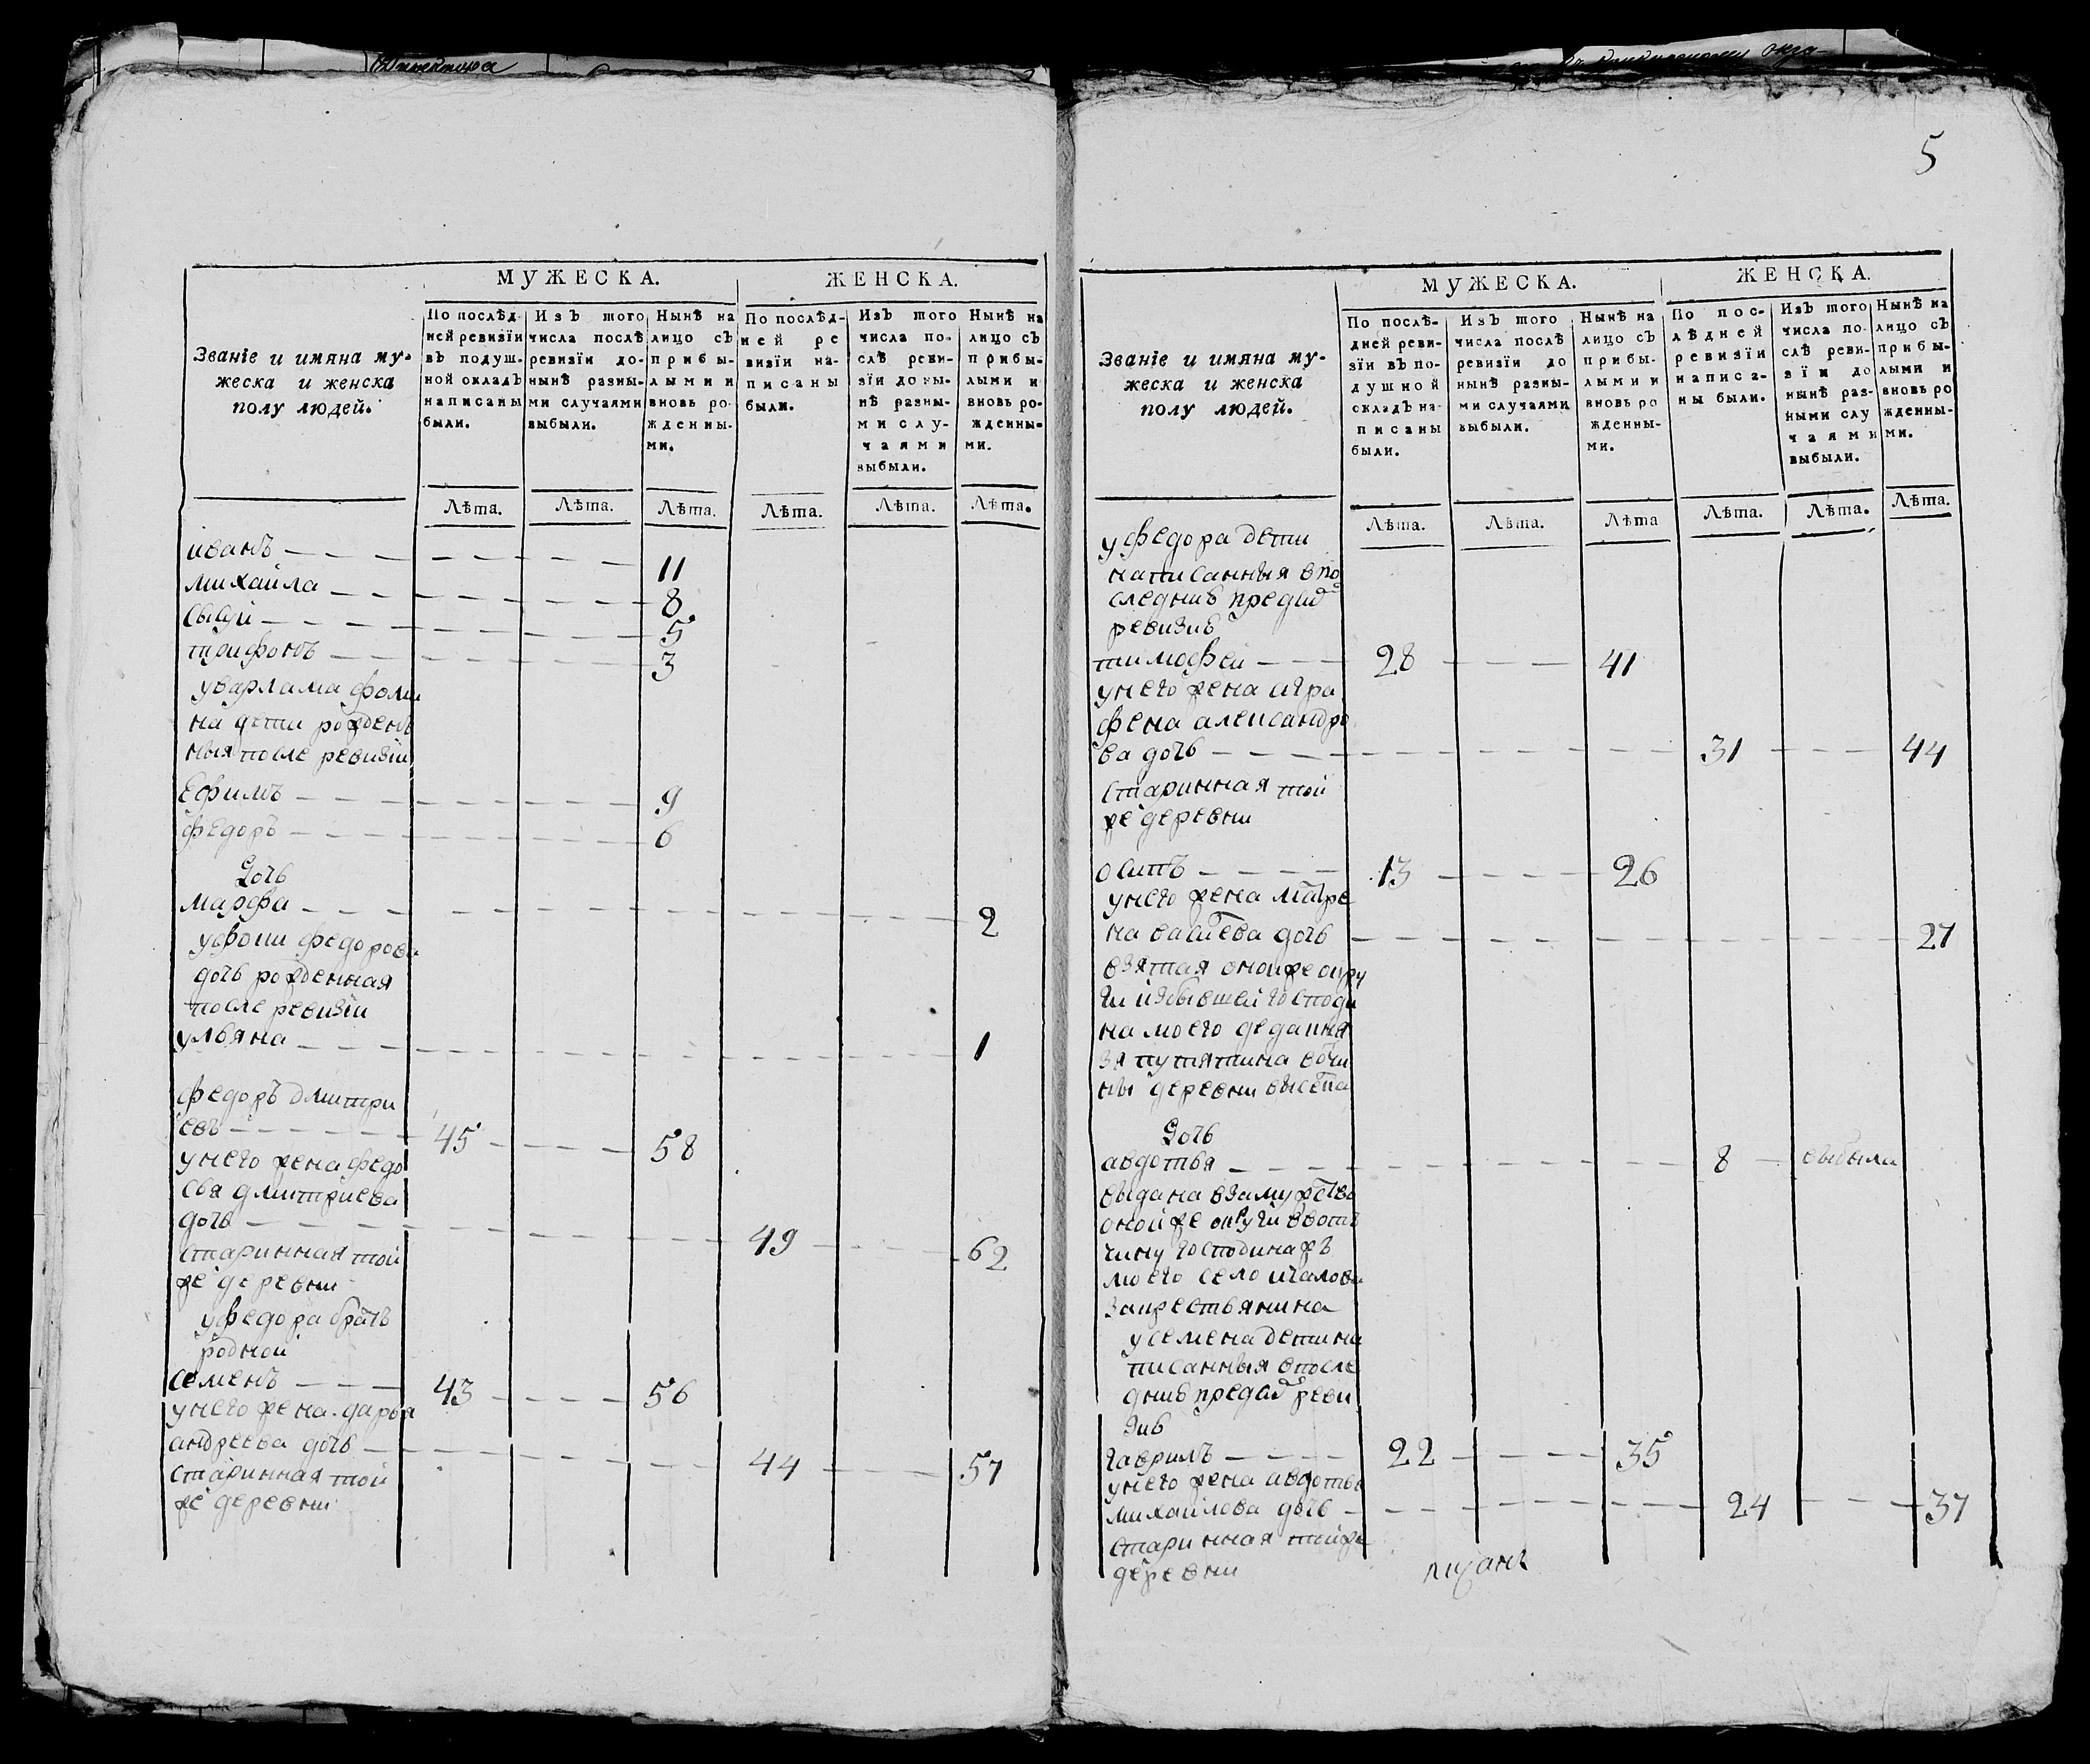 5
МУЖЕСКА. ЖЕНСКА.
Званіе и имяна му-
жеска и женска
полу людей.
По послѣд-
ней ревизїи
въ подуш-
ной окладъ
написаны
были.
Изъ того
числа послѣ
ревизїи до-
нынѣ разны-
ми случаями
выбыли.
Нынѣ на
лицо съ
прибы-
лыми и
вновь ро-
жденны-
ми.
По послѣд-
ней ре
визїи на-
писаны
были.
Изъ того
числа по-
слѣ реви-
зїи до ны-
нѣ разны-
ми слу-
чаями
выбыли.
Нынѣ на
лицо съ
прибы-
лыми и
вновь ро-
жденны-
ми.
Лѣта. Лѣта. Лѣта. Лѣта. Лѣта. Лѣта.
иванъ 11
михайла 8
сысуй 5
трифонъ 3
уварлама фоми
на дети рожден
ныя после ревизïи
Ефимъ 9
федоръ 6
дочь
марфа 2
уфомы федорова
дочь рожденная
после ревизïи
ульяна 1
федоръ дмитри
евъ 45 58
унего жена федо
сья дмитриева
дочь 49 62
старинная той
же деревни
уфедора братъ
родной
семенъ 43 56
унего жена дарья
андреева дочь 44 57
старинная той
же деревни
МУЖЕСКА. ЖЕНСКА.
Званіе и имяна му-
жеска и женска
полу людей.
По послѣ-
дней реви-
зїи въ по-
душной
окладъ на-
писаны
были.
Изъ того
числа послѣ
ревизїи до
нынѣ разны-
ми случаями
выбыли.
Нынѣ на
лицо съ
прибы-
лыми и
вновь ро
жденны-
ми.
По пос-
лѣдней
ревизїи
написа-
ны были.
Изъ того
числа по-
слѣ реви-
зїи до
нынѣ раз-
ными слу
чаями
выбыли.
Нынѣ на
лицо съ
прибы-
лыми и
вновь ро
жденны-
ми.
Лѣта. Лѣта. Лѣта Лѣта. Лѣта. Лѣта.
уфедора дети
написанныя впо
следнѣ предид
ревизиѣ
тимофей 28 41
унего жена агра
фена александро
ва дочь 31 44
старинная той
же деревни
осипъ 13 26
унего жена матре
на дочь 27
взятая оной же окру
ги избывшей господи
на моего деда кня
зя путятина вотчи
ны деревни
дочь
авдотья 8 выбыла
выдана взамужство
оной же округи ввотъ
чину господина жъ
моего село
закрестьянина
усемена дети на
писанныя впосле
днѣ предид реви
зиѣ
гаврилъ 22 35
унего жена авдотья
михайлова дочь 24 37
старинная той же
деревни